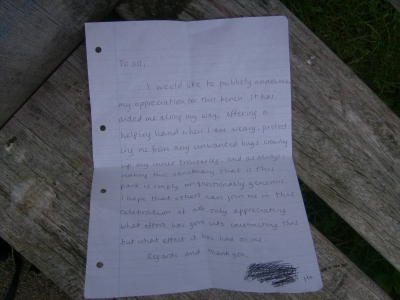 To all,
I would like to publicly announce
my appreciation for this bench. It has
aided me along my way, offering a
helping hand when I am weary, protect
ing me from any unwanted bugs
up my inner trouserlegs, and
making this sanctuary that is this
park is simply unquestionably genuine.
I hope that others can join me in this
celebration of not only appreciating
what effort has gone into constructing this
but what effect it has had on me.
Regards and thankyou,